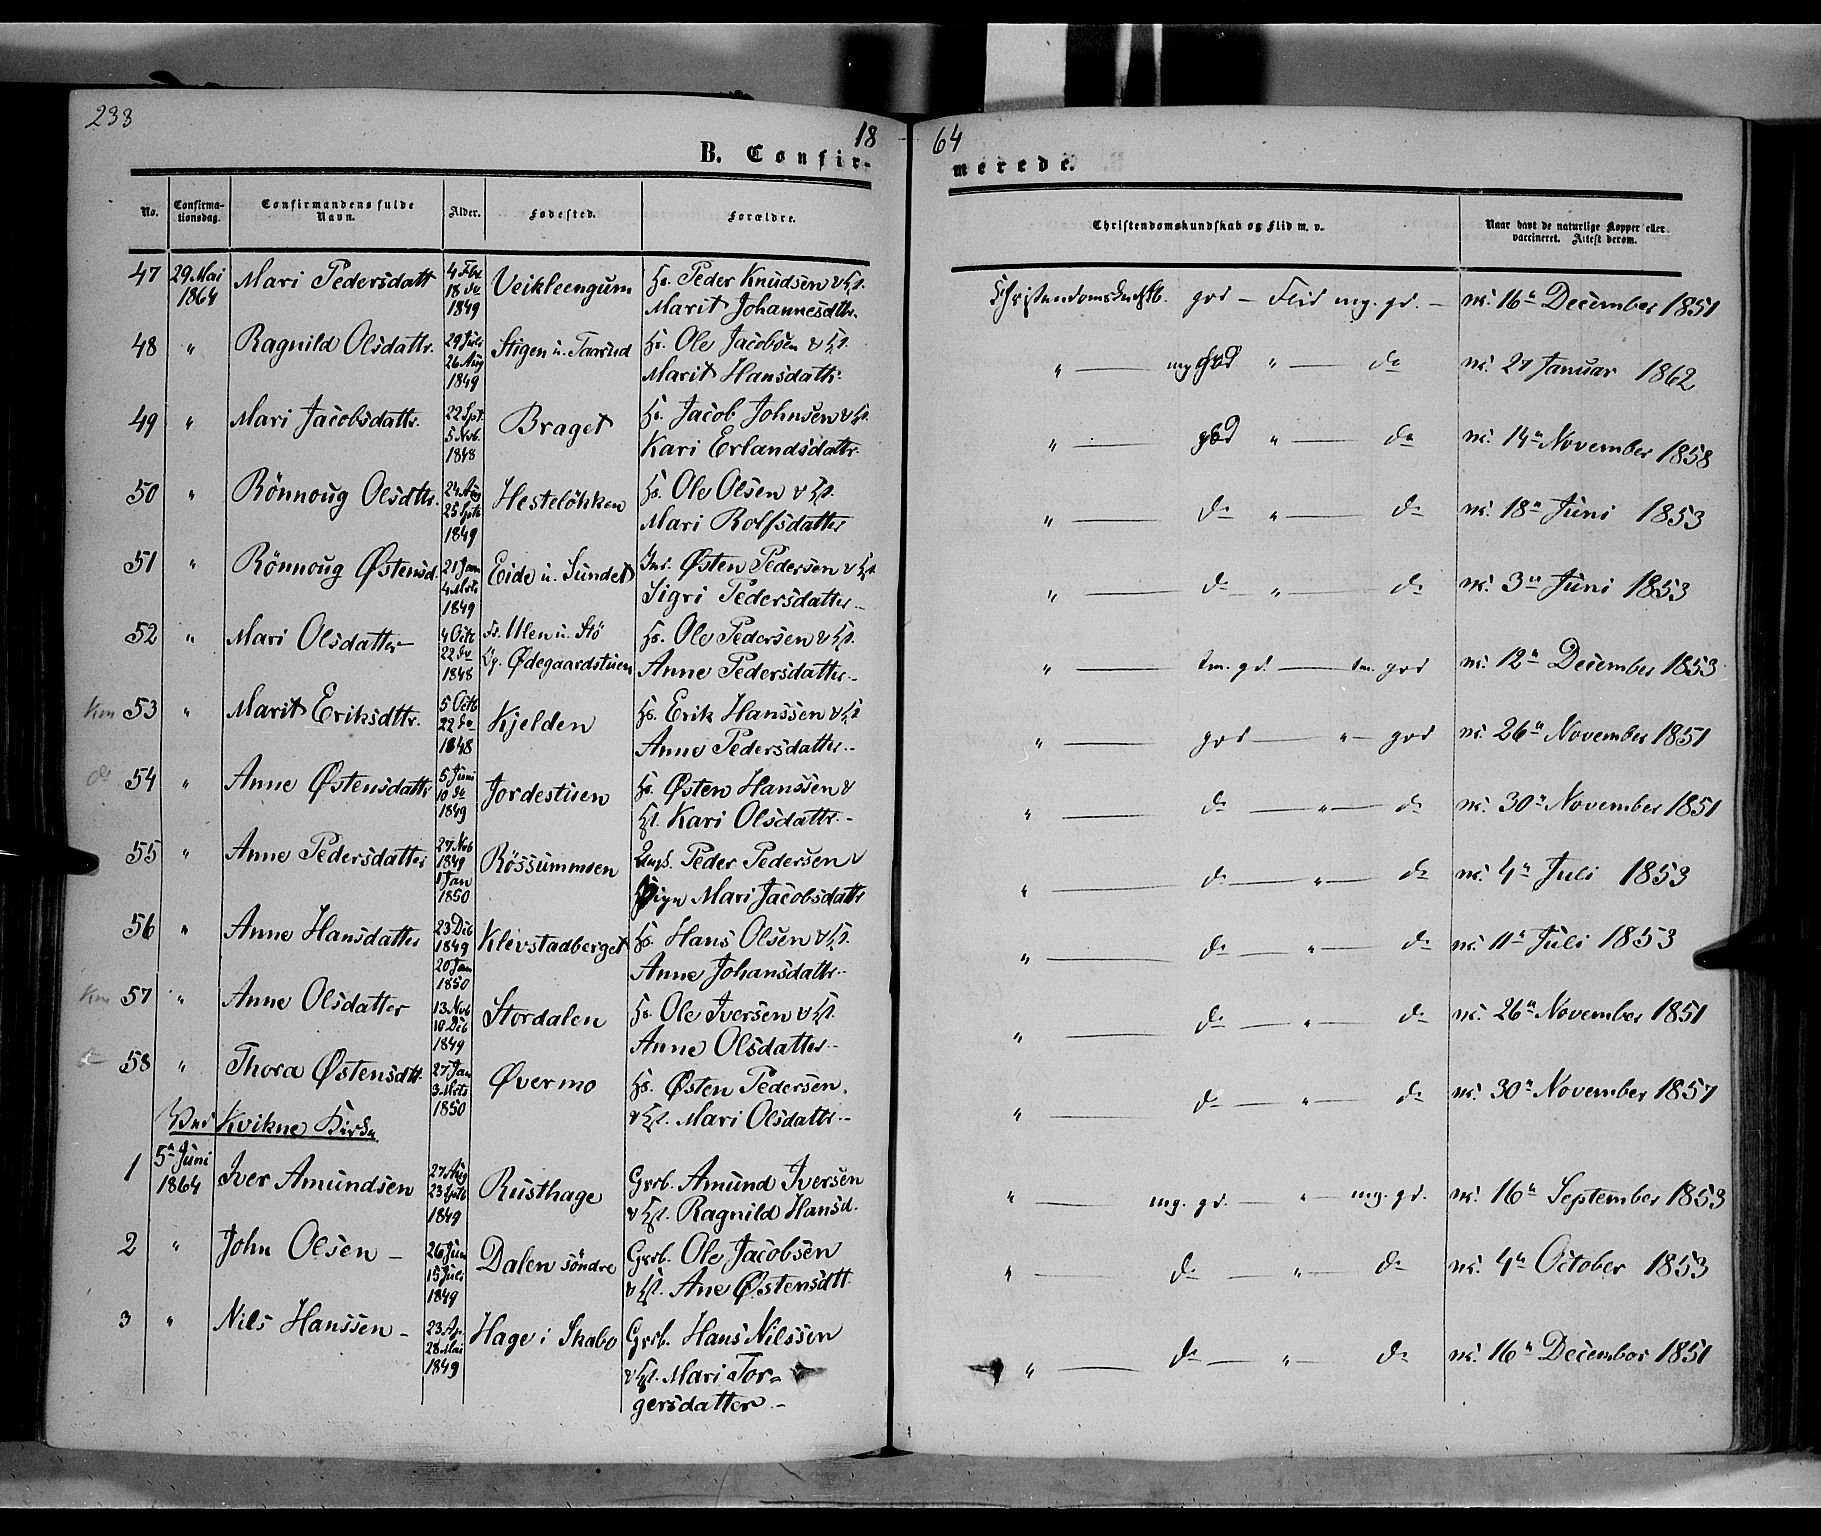 233
18
64
B. Confir-
merede.
No.
Confirma-
tionsdag.
Confirmandens fulde
Navn.
Alder.
Fødested.
Forældre.
Christendomskundskab og Flid m. v.
Naar havt de naturlige Kopper eller
vaccineret. Attest derom.
47 29 Mai 1864 Mari Pedersdatt 4 Fbr. 18 do 1849 Veikleengum Hs. Peder Knudsen & Hst. Marit Johannesdtr. Christendomskndskb. god — Flid mg. gd. — vc. 16n December 1851
48 " Ragnild Olsdattr. 29 Juli 26 Aug 1849 Stigen u. Taarud Hs. Ole Jacobsen & Hst. Marit Hansdattr. " — mg god " — do vc. 27 Januar 1862
49 " Mari Jacobsdattr. 22 Spt. 5 Nvb. 1848 Braget Hs. Jacob Johnsen & Hst. Kari Erlandsdattr. " — god " — do vc. 14n November 1858
50 " Rönnoug Olsdttr. 24 Aug 25 Sptb 1849 Hestelökken Hs. Ole Olsen & Hst. Mari Rolfsdatter " — do " — do vc. 18n Juni 1853
51 " Rönnoug Østensd. 21 Jan 4 Mrts 1849 Eide u. Sundet Ins. Østen Pedersen & Hst. Sigri Pedersdatter — " — do " — do vc. 3n Juni 1853
52 " Mari Olsdatter 4 Octb 22 do 1848 Fs. Ulen u. Stö Lg. Ødegaardstuen Hs. Ole Pedersen & Hst. Anne Pedersdatter — " — tm. gd. — tm. god vc. 12n December 1853
Km 53 " Marit Eriksdttr. 5 Octb 22 do 1848 Kjelden Hs. Erik Hanssen & Hst. Anne Pedersdatter — " — god — " — god vc. 26n November 1851
do 54 " Anne Østensdattr 5 Juni 10 do 1849 Jordestuen Hs. Østen Hanssen & Hst. Kari Olsdattr. — " — do — " — do vc. 30n November 1851
55 " Anne Pedersdatter 27 Nvb 1849 1 Jan 1850 Rössummoen Ungk. Peder Pedersen & Pign Mari Jacobsdattr " — do — " — do vc. 4n Juli 1853
56 " Anne Hansdatter 23 Dcb 1849 20 Jan 1850 Klevstadberget Hs. Hans Olsen & Hst. Anne Johansdattr. — " — do — " — do vc. 11n Juli 1853
Km 57 " Anne Olsdatter 13 Nvb 10 Dcb 1849 Stordalen Hs. Ole Iversen & Hst. Anne Olsdatter — " — do — " — do vc. 26n November 1851
58 " Thora Østensdtt. 27 Jan 3 Mrts 1850 Øvermo Hs. Østen Pedersen & Hst. Mari Olsdattr. — " — do — " — do vc. 30n November 1857
Ved Kvikne Kirke
1 5n Juni 1864 Iver Amundsen 27 Aug 23 Sptb 1849 Rusthage Grdb. Amund Iversen & Hst. Ragnild Hansd. " — mg. gd. — " — mg. gd. vc. 16n September 1853
2 " John Olsen — 26 Jun 15 Juli 1849 Dalen söndre Grdb. Ole Jacobsen & Hst. Ane Østensdtt " — do — " — do vc. 4n October 1853
3 " Nils Hanssen — 23 Ap. 28 Mai 1849 Hage i Skabo Grdb. Hans Nilssen & Hst. Mari Tor-
gersdatter. — " — do — " — do vc. 16n December 1851